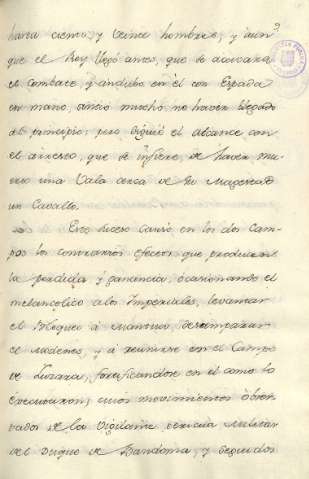 havia ciento, y veinte hombres, y aun
que el Rey llegó antes, que se acavara
el combate, y andubo en él con Espada
en mano, sintió mucho no haver llegado
al principio; pero siguió el alcance con
el arresto, que se infiere de haver mu-
erto una Vala cerca de su Magestad
un Cavallo.
Este suceso causó en los dos Cam-
pos los contrarios efectos, que producen
la perdida, y ganancia, ocasionando el
melancolico a los Imperiales, levantar
el Bloqueo á Mantua, desamparar
el Modenes, y á reunirse en el Campo
de Luzara, fortificandose en el como lo
executaron; cuios movimientos obser-
vados de la Vigilante pericia Militar
del Duque de Bandoma, y seguidos